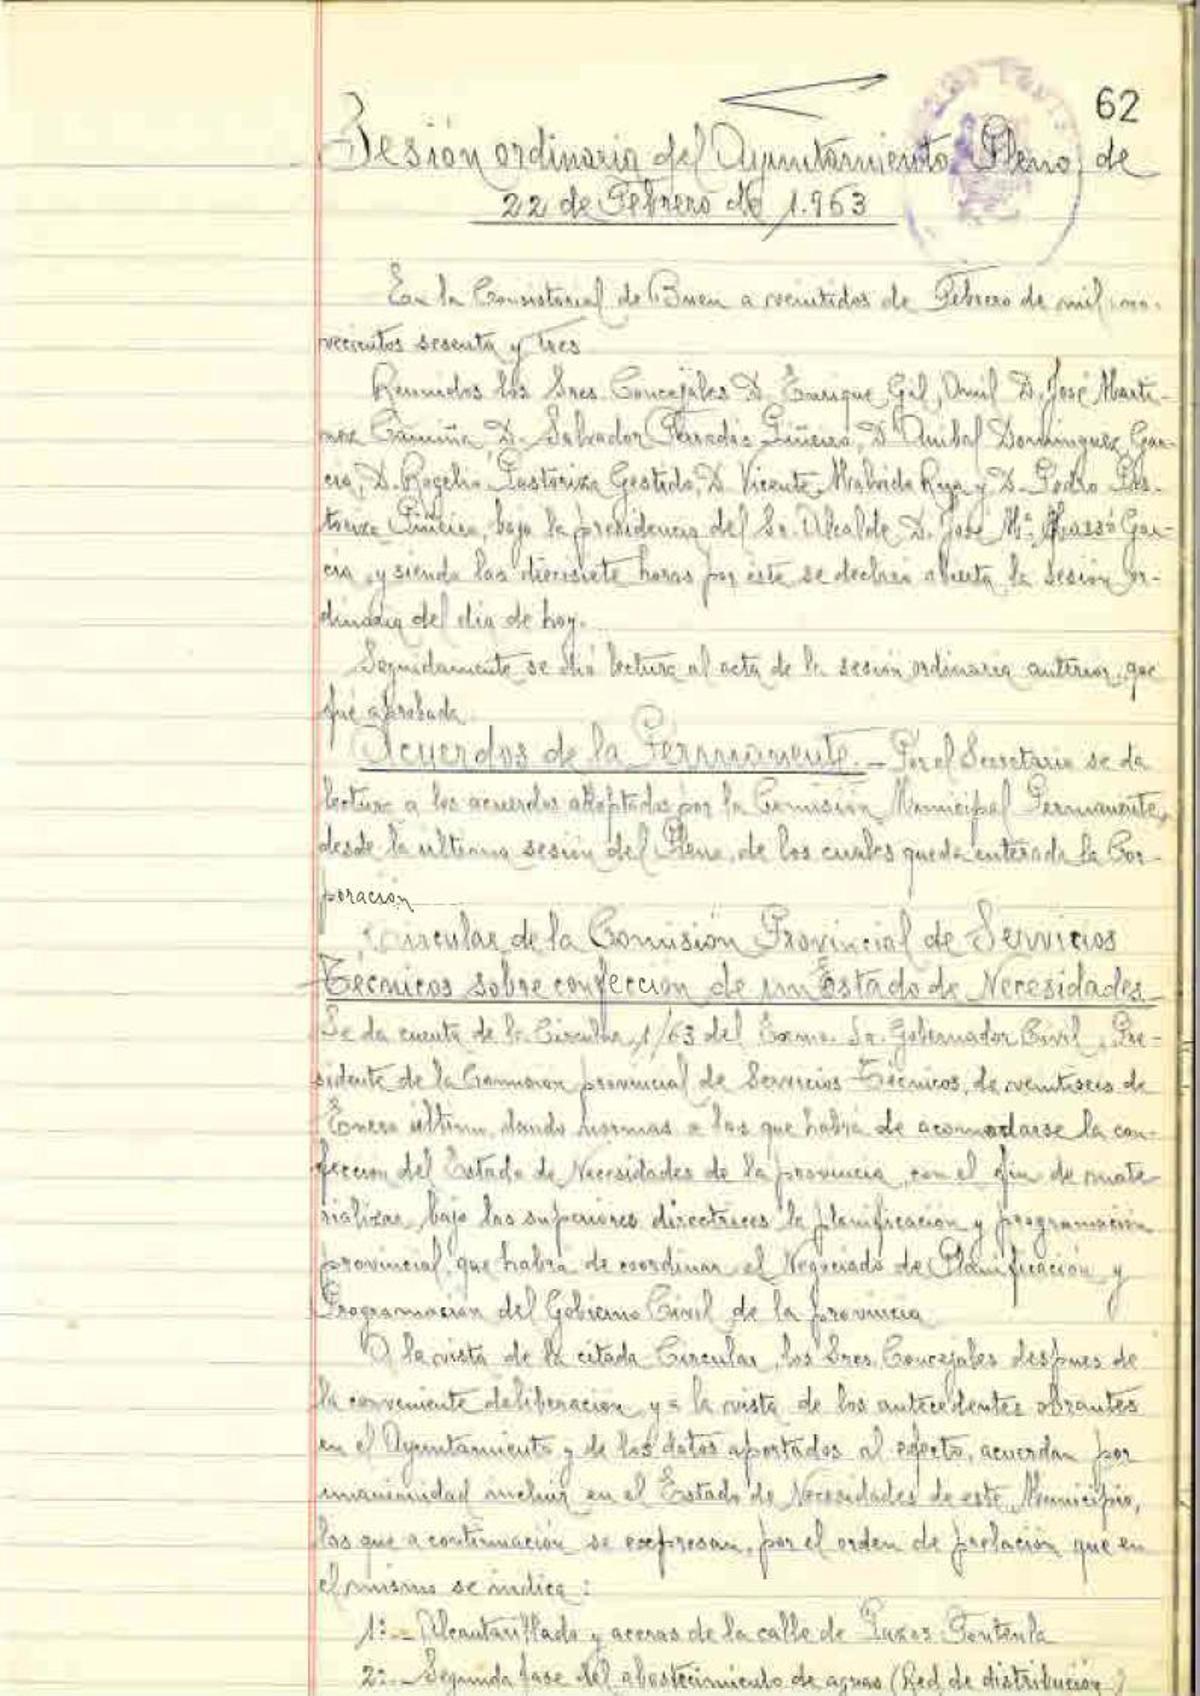 62
Sesión ordinaria del Ayuntamiento Pleno, de
22 de Febrero de 1.963
En la Consistorial de Bueu a veintidos de Febrero de mil no-
vecientos sesenta y tres
Reunidos los Sres. Concejales D. Enrique Gil, Omil D. José Marti-
nez Camiña, D. Salvador Paredes Piñeiro, D. Anibal Dominguez Gar-
cia, D. Rogelio Pastoriza Gestido, D. Vicente Malvido Rga y D. Pedro Pas-
toriza Piñeiro, bajo la presidencia del Sr. Alcalde D. José Mª Massó Gar-
cia, y siendo las diecisiete horas por éste se declara abierta la sesión or-
dinaria del dia de hoy.
Seguidamente se dió lectura al acta de la sesión ordinaria anterior, que
fué aprobada.
Acuerdos de la Permanente.- Por el Secretario se da
lectura a los acuerdos adoptados por la Comisión Municipal Permanente,
desde la ultima sesión del Pleno, de los cuales queda enterada la Cor-
poración
Circular de la Comisión Provincial de Servicios
Técnicos sobre confección de un Estado de Necesidades
Se da cuenta de la Circular 1/63 del Excmo. Sr. Gobernador Civil, Pre-
sidente de la Comision provincial de Servicios Técnicos, de veintiseis de
Enero último, dando normas a las que habrá de acomodarse la con-
feccion del Estado de Necesidades de la provincia, con el fin de mate-
rializar, bajo las superiores directrices la planificación y programación
provincial, que habrá de coordinar el Negociado de Planificación y
Programación del Gobierno Civil de la provincia
A la vista de la citada Circular, los Sres. Concejales despues de
la conveniente deliberación y a la vista de los antecedentes obrantes
en el Ayuntamiento y de los datos aportados al efecto, acuerdan por
unanimidad incluir en el Estado de Necesidades de este Municipio,
las que a continuación se expresan, por el orden de prelación que en
el mismo se indica:
1º.- Alcantarillado y aceras de la calle de Pazos Fontenla
2º.- Segunda fase del abastecimiento de aguas (Red de distribución)